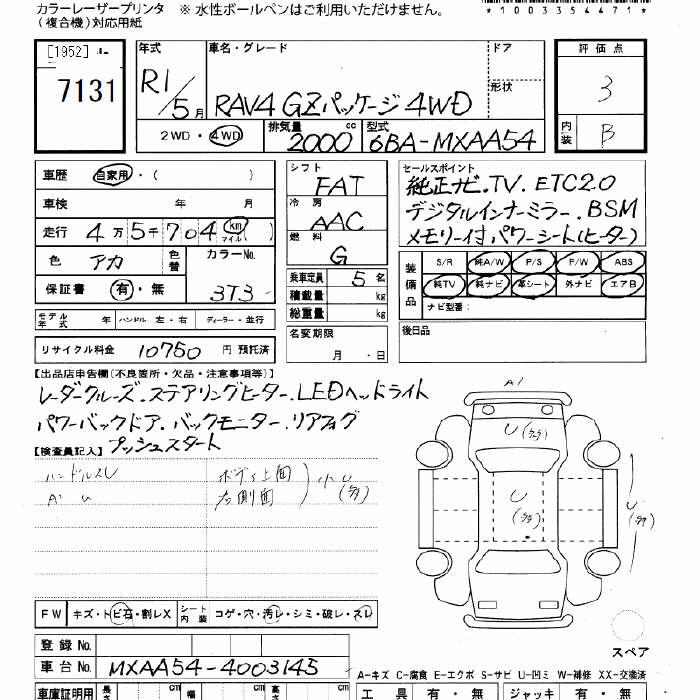 カラーレーザープリンタ ※ 水性ボールペンはご利用いただけません。
(複合機)対応用紙
*1003354471*
[1952]
7131
年式 車名・グレード ドア 評価点
R1/5月 RAV4 GZパッケージ 4WD 形状 3
2WD・4WD 排気量 2000 cc 型式 6BA-MXAA54 内装 B
車歴 自家用・( )
車検 年 月
走行 4万5千704 km マイル( )
色 アカ 色替 カラーNo. 3T3
保証書 有・無
シフト FAT
冷房 AAC
燃料 G
乗車定員 5名
積載量 kg
総重量 kg
名変期限 月 日
セールスポイント
純正ナビ.TV. ETC2.0
デジタルインナーミラー. BSM
メモリー付パワーシート(ヒーター)
装備品 S/R 純A/W P/S P/W ABS
純TV 純ナビ 革シート 外ナビ エアB
ナビ型番:
後日品
モデル年式 年 ハンドル 左・右 ディーラー・並行
リサイクル料金 10750 円 預託済
【出品店申告欄(不良箇所・欠品・注意事項等)】
レーダークルーズ.ステアリングヒーター.LEDヘッドライト
パワーバックドア.バックモニター.リアフォグ
プッシュスタート
【検査員記入】
ハンドルスレ ボディ上面 小U(多)
A U 右側面
A1
U(多)
U(多)
U(多)
FW キズ・トビ石・割レX シート内装 コゲ・穴・汚レ・シミ・破レ・スレ
スペア
登録No.
車台No. MXAA54-4003145
A-キズ C-腐食 E-エクボ S-サビ U-凹ミ W-補修 XX-交換済
車庫証明用 長さ cm 幅 cm 高さ cm 工具 有・無 ジャッキ 有・無